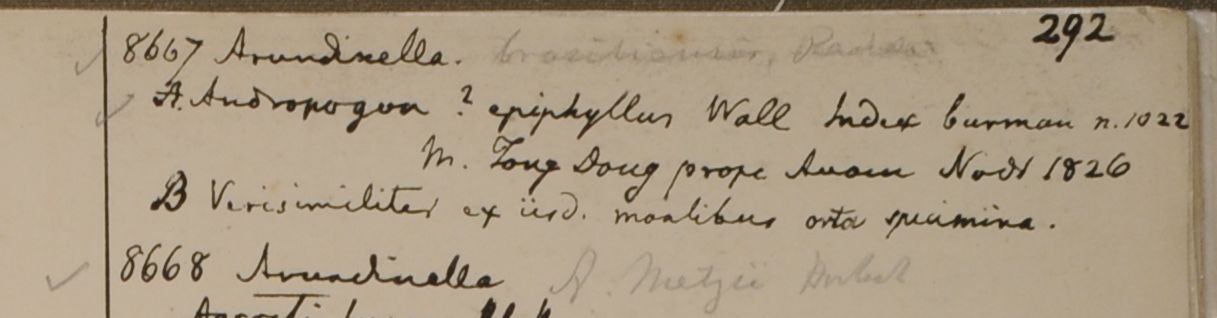 292
8667 Arundinella. brasiliensis, Raddi
A. Andropogon ? epiphyllus Wall Index burman n. 1022
M. Toung Doug prope Avam Novbr 1826
B Verisimiliter ex iisd. montibus orta specimina.
8668 Arundinella A. Metzii